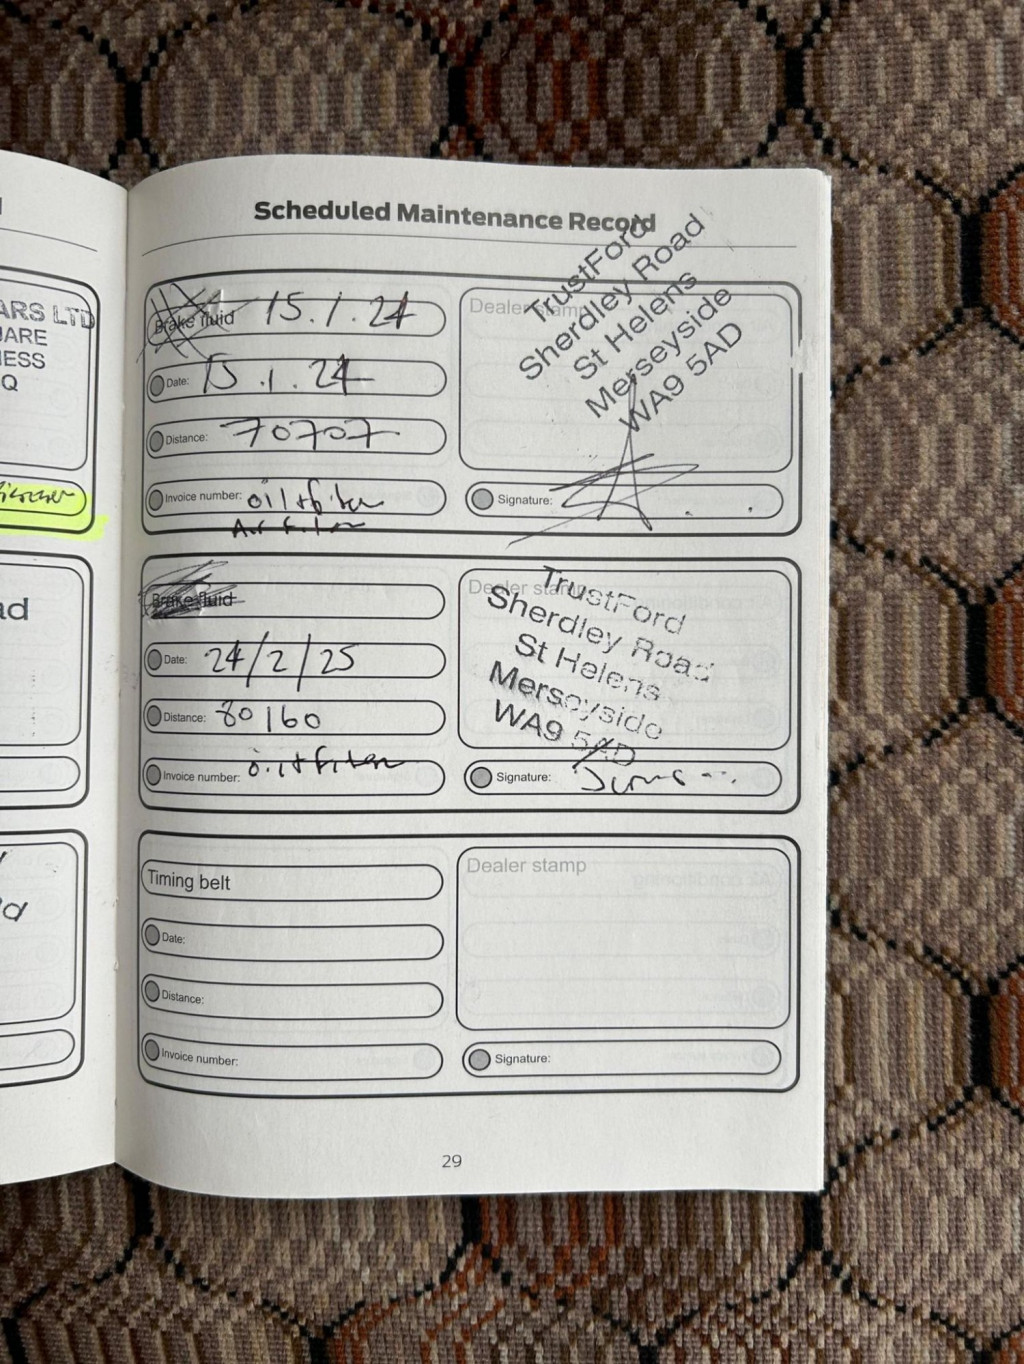 ARS LTD
UARE
NESS
Q
ad
Scheduled Maintenance Record
Brake fluid 15.1.24
Date: 15.1.24
Distance: 70707
Invoice number: oil + filter
Air Filter
Dealer stamp
TrustFord
Sherdley Road
St Helens
Merseyside
WA9 5AD
Signature:
Brake fluid
Date: 24/2/25
Distance: 80160
Invoice number: oil + filter
Dealer stamp
TrustFord
Sherdley Road
St Helens
Merseyside
WA9 5AD
Signature:
Timing belt
Date:
Distance:
Invoice number:
Dealer stamp
Signature:
29